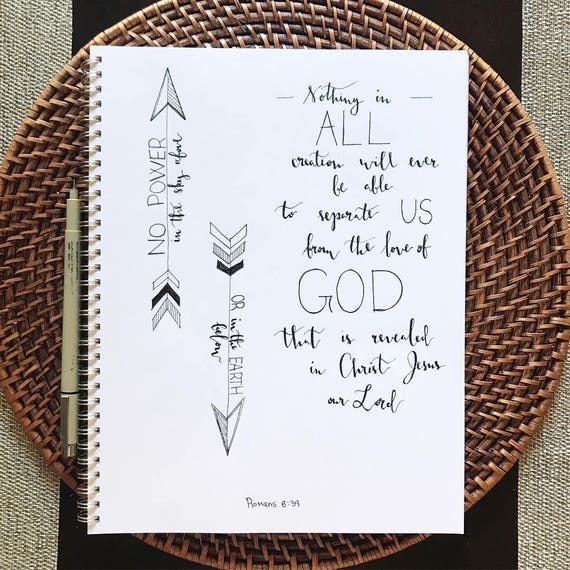 NO POWER
in the sky above
OR in the EARTH
below
Nothing in
ALL
creation will ever
be able
to separate US
from the love of
GOD
that is revealed
in Christ Jesus
our Lord
Romans 8:39